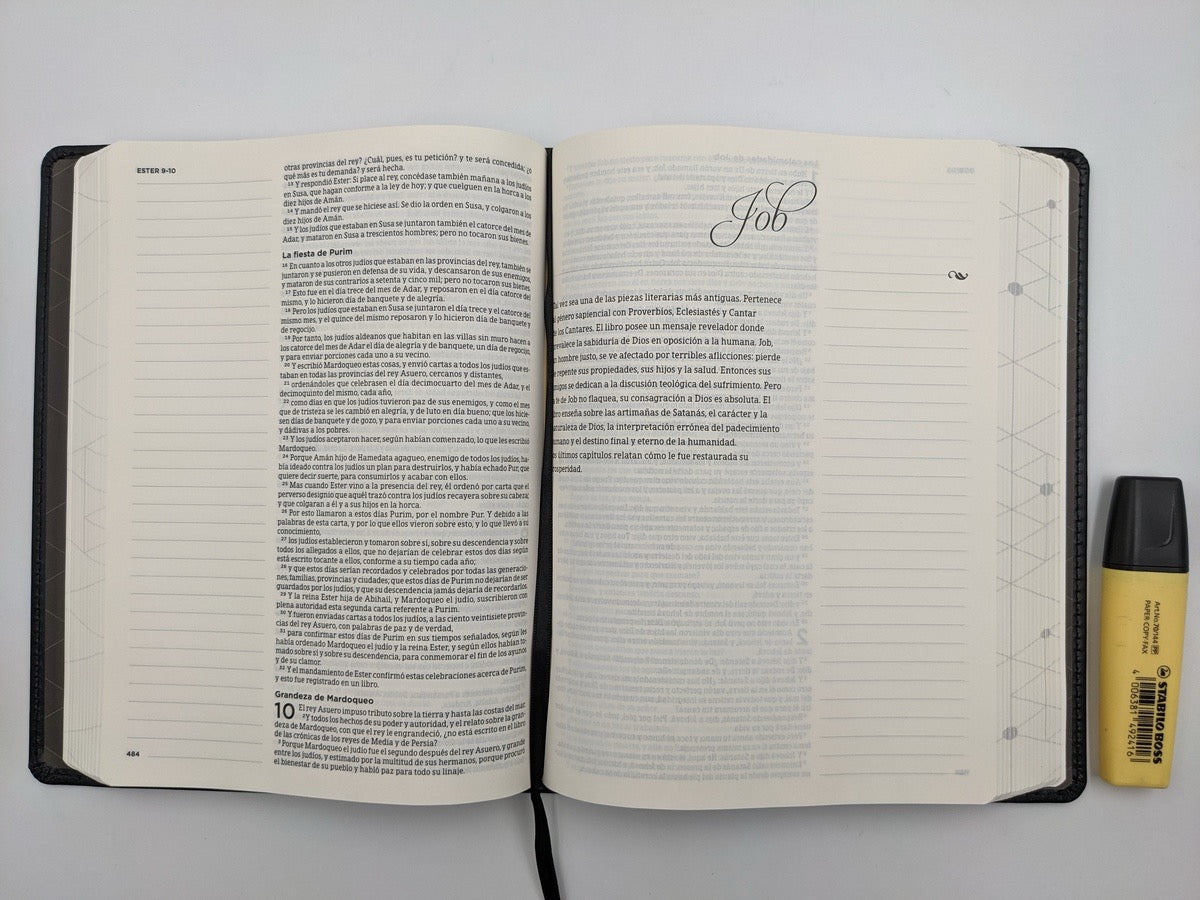 ESTER 9-10
otras provincias del rey? ¿Cuál, pues, es tu petición? y te será concedida; ¿o
qué más es tu demanda? y será hecha.
13 Y respondió Ester: Si place al rey, concédase también mañana a los judíos
en Susa, que hagan conforme a la ley de hoy; y que cuelguen en la horca a los
diez hijos de Amán.
14 Y mandó el rey que se hiciese así. Se dio la orden en Susa, y colgaron a los
diez hijos de Amán.
15 Y los judíos que estaban en Susa se juntaron también el catorce del mes de
Adar, y mataron en Susa a trescientos hombres; pero no tocaron sus bienes.
La fiesta de Purim
16 En cuanto a los otros judíos que estaban en las provincias del rey, también se
juntaron y se pusieron en defensa de su vida, y descansaron de sus enemigos,
y mataron de sus contrarios a setenta y cinco mil; pero no tocaron sus bienes.
17 Esto fue en el día trece del mes de Adar, y reposaron en el día catorce del
mismo, y lo hicieron día de banquete y de alegría.
18 Pero los judíos que estaban en Susa se juntaron el día trece y el catorce del
mismo mes, y el quince del mismo reposaron y lo hicieron día de banquete y
de regocijo.
19 Por tanto, los judíos aldeanos que habitan en las villas sin muro hacen a
los catorce del mes de Adar el día de alegría y de banquete, un día de regocijo,
y para enviar porciones cada uno a su vecino.
20 Y escribió Mardoqueo estas cosas, y envió cartas a todos los judíos que es-
taban en todas las provincias del rey Asuero, cercanos y distantes,
21 ordenándoles que celebrasen el día decimocuarto del mes de Adar, y el
decimoquinto del mismo, cada año,
22 como días en que los judíos tuvieron paz de sus enemigos, y como el mes
que de tristeza se les cambió en alegría, y de luto en día bueno; que los hicie-
sen días de banquete y de gozo, y para enviar porciones cada uno a su vecino,
y dádivas a los pobres.
23 Y los judíos aceptaron hacer, según habían comenzado, lo que les escribió
Mardoqueo.
24 Porque Amán hijo de Hamedata agagueo, enemigo de todos los judíos, ha-
bía ideado contra los judíos un plan para destruirlos, y había echado Pur, que
quiere decir suerte, para consumirlos y acabar con ellos.
25 Mas cuando Ester vino a la presencia del rey, él ordenó por carta que el
perverso designio que aquél trazó contra los judíos recayera sobre su cabeza;
y que colgaran a él y a sus hijos en la horca.
26 Por esto llamaron a estos días Purim, por el nombre Pur. Y debido a las
palabras de esta carta, y por lo que ellos vieron sobre esto, y lo que llevó a su
conocimiento,
27 los judíos establecieron y tomaron sobre sí, sobre su descendencia y sobre
todos los allegados a ellos, que no dejarían de celebrar estos dos días según
está escrito tocante a ellos, conforme a su tiempo cada año;
28 y que estos días serían recordados y celebrados por todas las generacio-
nes, familias, provincias y ciudades; que estos días de Purim no dejarían de ser
guardados por los judíos, y que su descendencia jamás dejaría de recordarlos.
29 Y la reina Ester hija de Abihail, y Mardoqueo el judío, suscribieron con
plena autoridad esta segunda carta referente a Purim.
30 Y fueron enviadas cartas a todos los judíos, a las ciento veintisiete provin-
cias del rey Asuero, con palabras de paz y de verdad,
31 para confirmar estos días de Purim en sus tiempos señalados, según les
había ordenado Mardoqueo el judío y la reina Ester, y según ellos habían to-
mado sobre sí y sobre su descendencia, para conmemorar el fin de los ayunos
y de su clamor.
32 Y el mandamiento de Ester confirmó estas celebraciones acerca de Purim,
y esto fue registrado en un libro.
Grandeza de Mardoqueo
10 El rey Asuero impuso tributo sobre la tierra y hasta las costas del mar.
2 Y todos los hechos de su poder y autoridad, y el relato sobre la gran-
deza de Mardoqueo, con que el rey le engrandeció, ¿no está escrito en el libro
de las crónicas de los reyes de Media y de Persia?
3 Porque Mardoqueo el judío fue el segundo después del rey Asuero, y grande
entre los judíos, y estimado por la multitud de sus hermanos, porque procuró
el bienestar de su pueblo y habló paz para todo su linaje.
484
Job
vez sea una de las piezas literarias más antiguas. Pertenece
género sapiencial con Proverbios, Eclesiastés y Cantar
los Cantares. El libro posee un mensaje revelador donde
prevalece la sabiduría de Dios en oposición a la humana. Job,
hombre justo, se ve afectado por terribles aflicciones: pierde
repente sus propiedades, sus hijos y la salud. Entonces sus
amigos se dedican a la discusión teológica del sufrimiento. Pero
fe de Job no flaquea, su consagración a Dios es absoluta. El
libro enseña sobre las artimañas de Satanás, el carácter y la
naturaleza de Dios, la interpretación errónea del padecimiento
humano y el destino final y eterno de la humanidad.
últimos capítulos relatan cómo le fue restaurada su
prosperidad.
Art.No.70/144
PAPER·COPY·FAX
STABILO BOSS
4 006381 492416